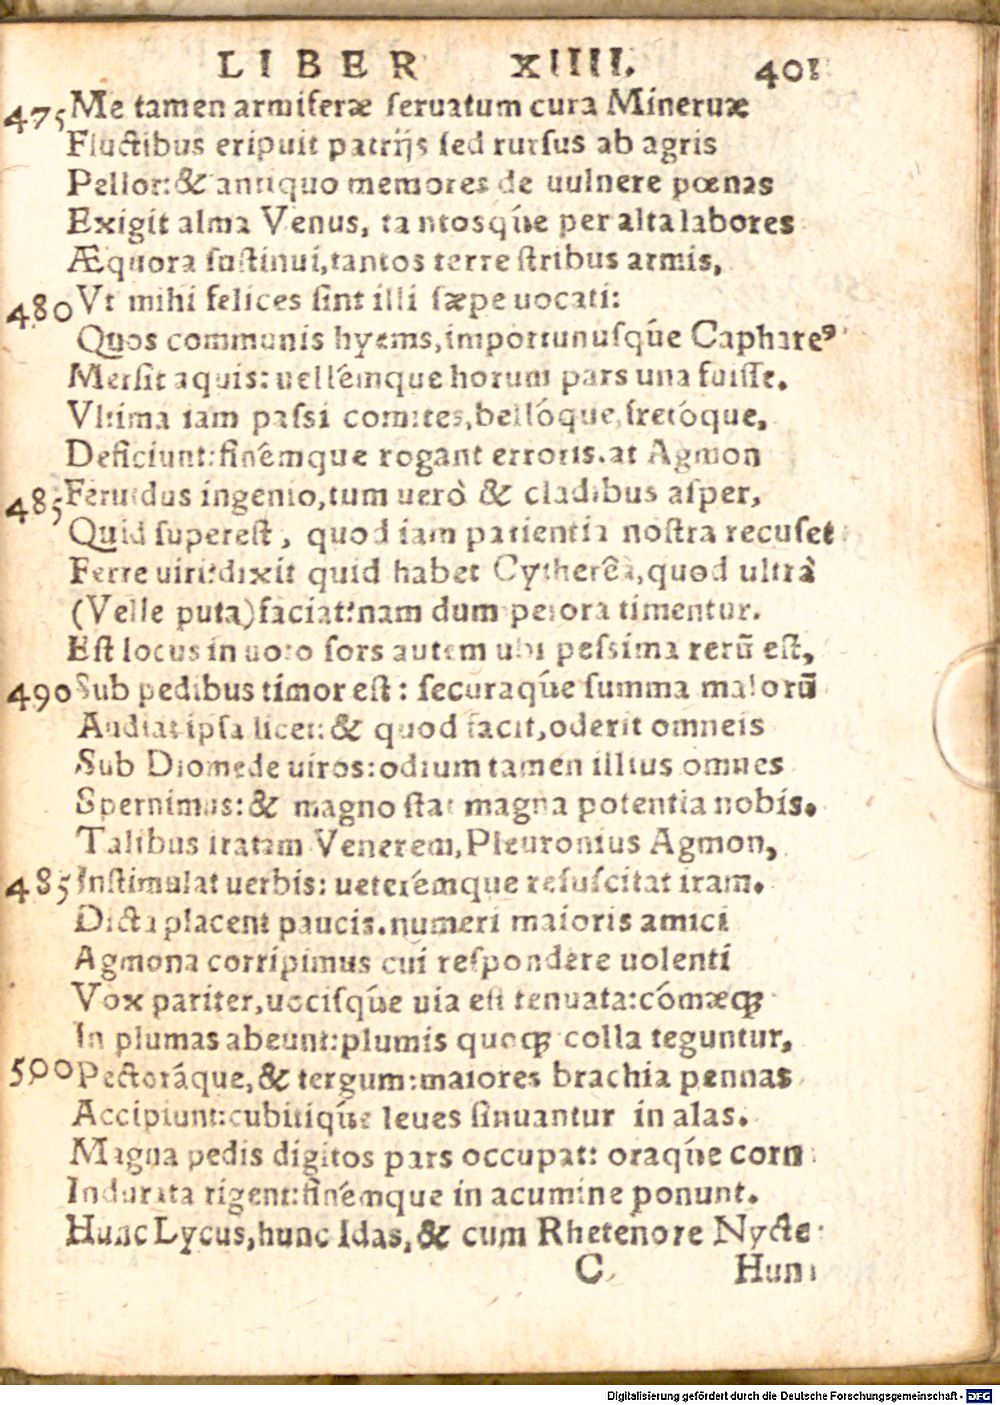 LIBER XIIII. 401
475 Me tamen armiferæ seruatum cura Mineruæ
Fluctibus eripuit patrijs sed rursus ab agris
Pellor: & antiquo memores de uulnere pœnas
Exigit alma Venus, tantosq́ue per alta labores
Æquora sustinui, tantos terrestribus armis,
480 Vt mihi felices sint illi sæpe uocati:
Quos communis hyems, importunusq́ue Caphareꝰ
Mersit aquis: uellémque horum pars una fuisse.
Vltima iam passi comites, bellóque, fretóque,
Deficiunt: finémque rogant erroris. at Agmon
485 Feruidus ingenio, tum uerò & cladibus asper,
Quid superest, quod iam patientia nostra recuset
Ferre uiri? dixit quid habet Cytherêa, quod ultrà
(Velle puta) faciat? nam dum peiora timentur.
Est locus in uoto sors autem ubi pessima rerũ est,
490 Sub pedibus timor est: securaq́ue summa malorũ
Audiat ipsa licet: & quod facit, oderit omneis
Sub Diomede uiros: odium tamen illius omnes
Spernimus: & magno stat magna potentia nobis.
Talibus iratam Venerem, Pleuronius Agmon,
485 Instimulat uerbis: ueterémque resuscitat iram.
Dicta placent paucis. numeri maioris amici
Agmona corripimus cui respondere uolenti
Vox pariter, uocisq́ue uia est tenuata: cómæqꝫ
In plumas abeunt: plumis quoqꝫ colla teguntur,
500 Pectoráque, & tergum: maiores brachia pennas
Accipiunt: cubitiq́ue leues sinuantur in alas.
Magna pedis digitos pars occupat: oraq́ue corn
Indurata rigent: finémque in acumine ponunt.
Hunc Lycus, hunc Idas, & cum Rhetenore Nycte
C Hun
Digitalisierung gefördert durch die Deutsche Forschungsgemeinschaft - DFG